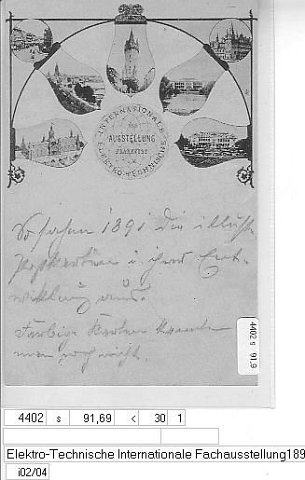 INTERNATIONALE
AUSSTELLUNG
FRANKFURT
ELEKTRO-TECHNISCHE
So sahen 1891 die illustr.
Postkarten u. ihre Ent-
wicklung aus.
Farbige Karten kannte
man noch nicht.
4402 s 91,9
4402 s 91,69 < 30 1
Elektro-Technische Internationale Fachausstellung189
i02/04